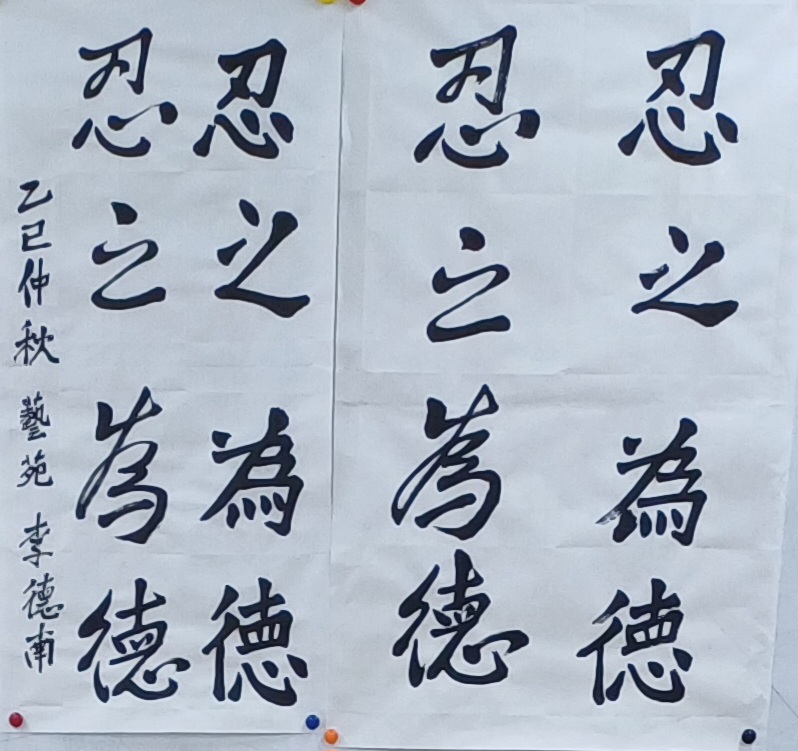 忍之為德
忍之為德
忍之為德
忍之為德
乙巳仲秋 藝苑 李德南